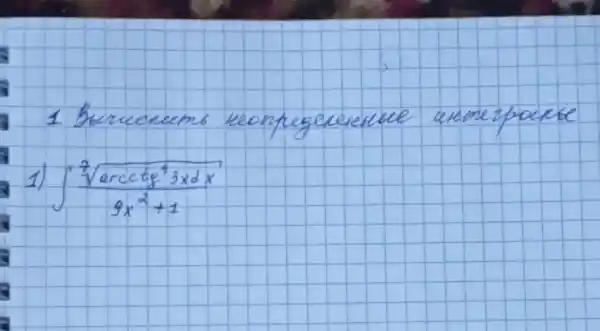 1 Вычислить неопределенные интегралы
1) ∫ ⁷√(arcctg⁴ 3x dx) / (9x² + 1)